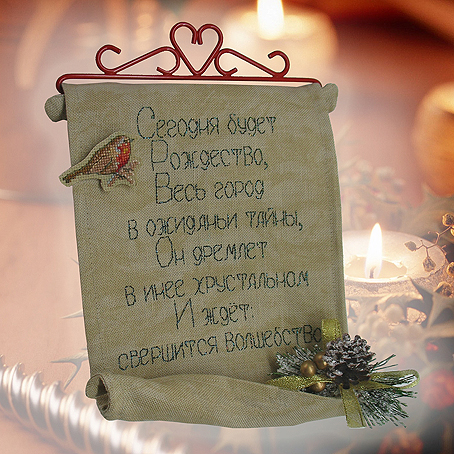 Сегодня будет
Рождество,
Весь город
в ожиданьи тайны,
Он дремлет
в инее хрустальном
И ждёт:
свершится волшебство